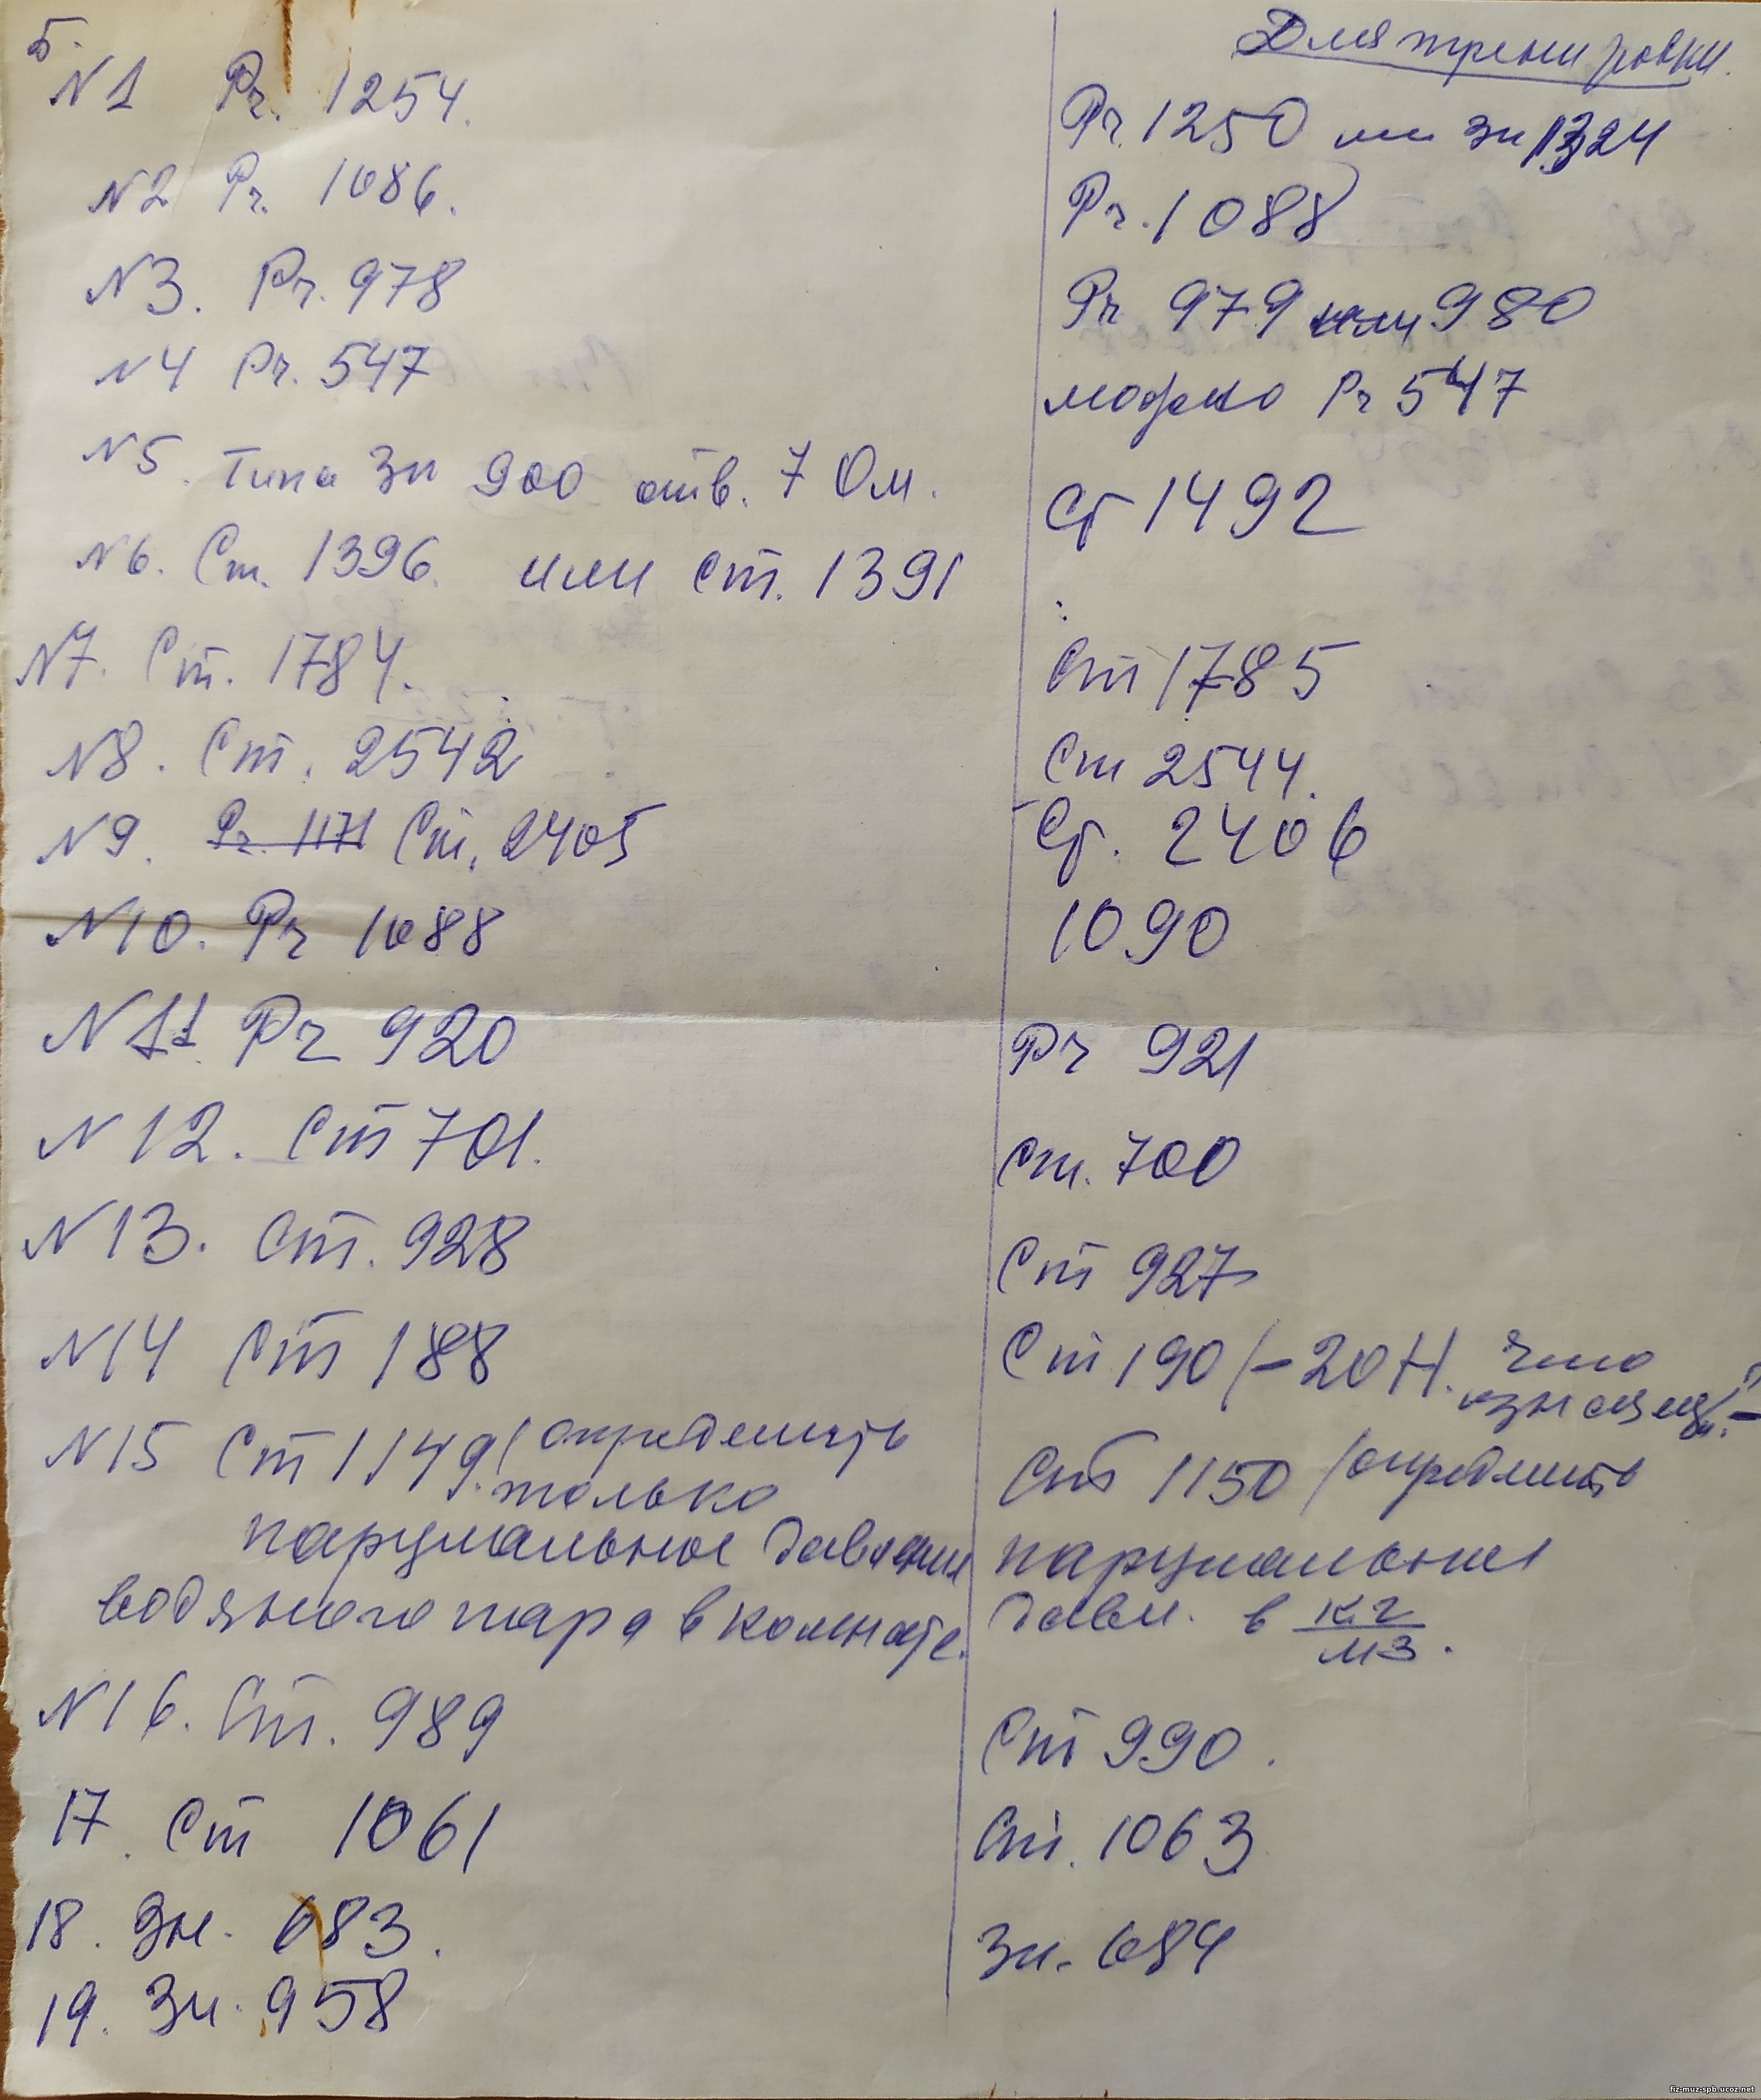 Б.
N1 Рч. 1254.
N2 Рч. 1086.
N3. Рч. 978
N4 Рч. 547
N5. Типа Зн 900 отв. 7 Ом.
N6. Ст. 1396. или Ст. 1391
N7. Ст. 1784.
N8. Ст. 2542
N9. Рч. 1171 Ст. 2405
N10. Рч 1088
N11 Рч 920
N12. Ст 701.
N13. Ст. 928
N14 Ст 188
N15 Ст 1149. (определить
только
парциальное давление
водяного пара в комнате.
N16. Ст. 989
17. Ст 1061
18. Зн. 683.
19. Зн. 958
Для тренировки.
Рч. 1250 или Зн 1324
Рч. 1088
Рч 979 или 980
можно Рч 547
Ст 1492
Ст 1785
Ст 2544.
Ст. 2406
1090
Рч 921
Ст. 700
Ст 927
Ст 190 (-20Н. Что
Ст 1150 (определить
парциальное
давл. в кг/м3.
Ст 990.
Ст. 1063
Зн. 684
fiz-muz-spb.ucoz.net